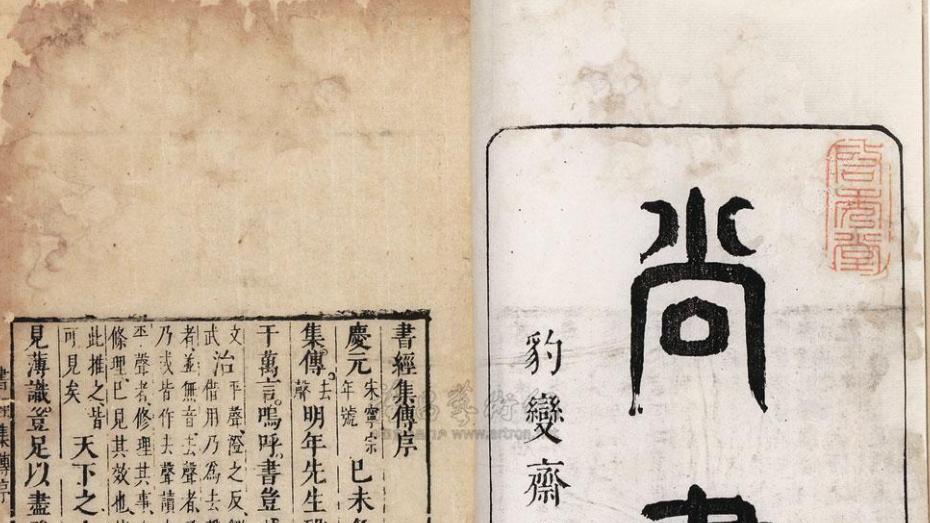 尚
豹變齋
書經集傳序
慶元宋寧宗年號已未
集傳去聲明年先生
千萬言嗚呼書豈
治平聲澄之反
借用乃為去聲
者並無音去聲者
乃或皆作去聲讀
平聲者修理其事
條理已見其效也
此推之皆
可見矣天下之
見薄識豈足以盡
書經集傳序
www.artron